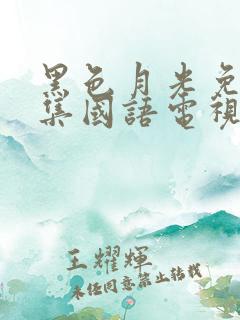 黑色月光免
集國語電視
王耀輝
未经同意禁止转载